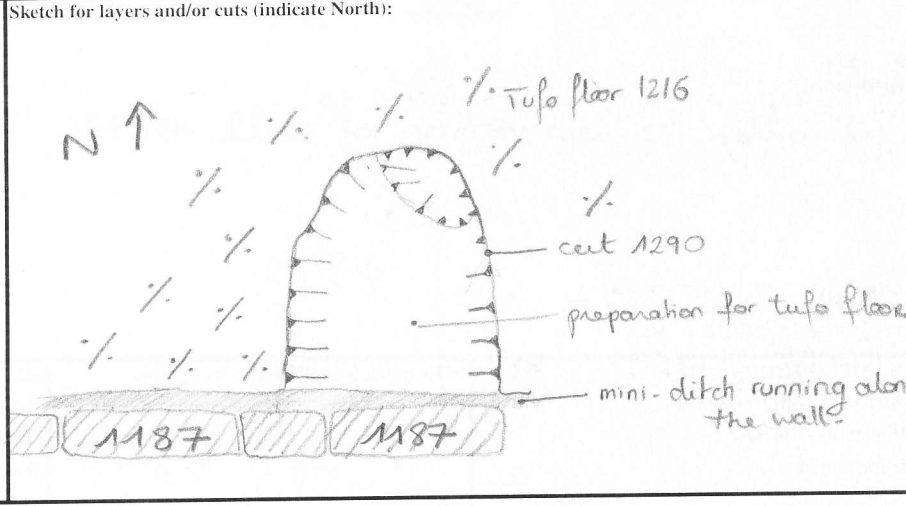 Sketch for layers and/or cuts (indicate North):
Tufo floor 1216
N
cut 1290
preparation for tufo floor
mini-ditch running alon
the wall-
1187
1187